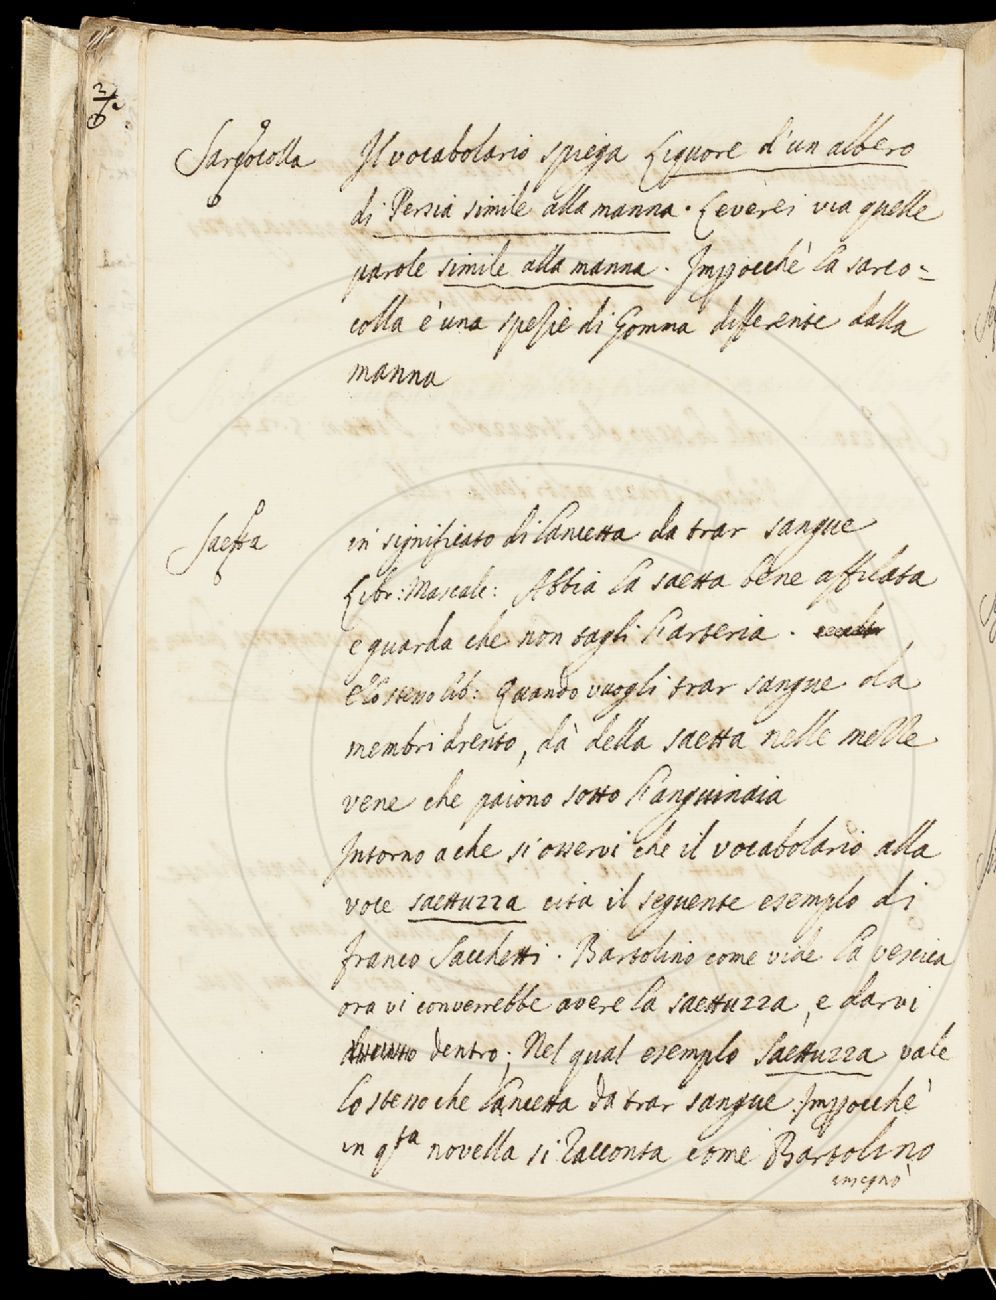 Sarcocolla Il vocabolario spiega Liquore d'un albero
di Persia simile alla manna. Leverei via quelle
parole simile alla manna. Imp̱occhè la sarco=
colla è una spesie di Gomma differente dalla
manna
Saetta in significato di lancetta da trar sangue
Libr: Mascalc: Abbia la saetta bene affilata
e guarda che non tagli l'arteria.
e lo stesso lib: Quando vuogli trar sangue da
membri drento, dà della saetta nelle melle
vene che paiono sotto l'anguinaia
Intorno a che si osservi che il vocabolario alla
voce saettuzza cita il seguente esemplo di
franco Sacchetti. Bartolino come vide la vescica
ora vi converrebbe avere la saettuzza, e darvi
dentro; Nel qual esemplo Saettuzza vale
lo stesso che lancetta da trar sangue. Imp̱occhè
in q.ta novella si racconta come Bartolino
insegnò